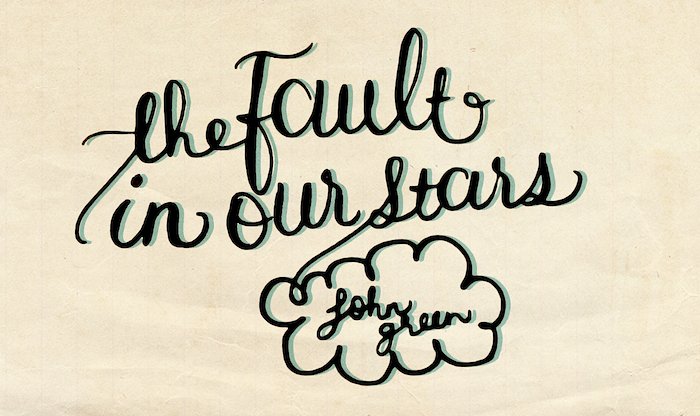 the Fault
in our stars
John
green